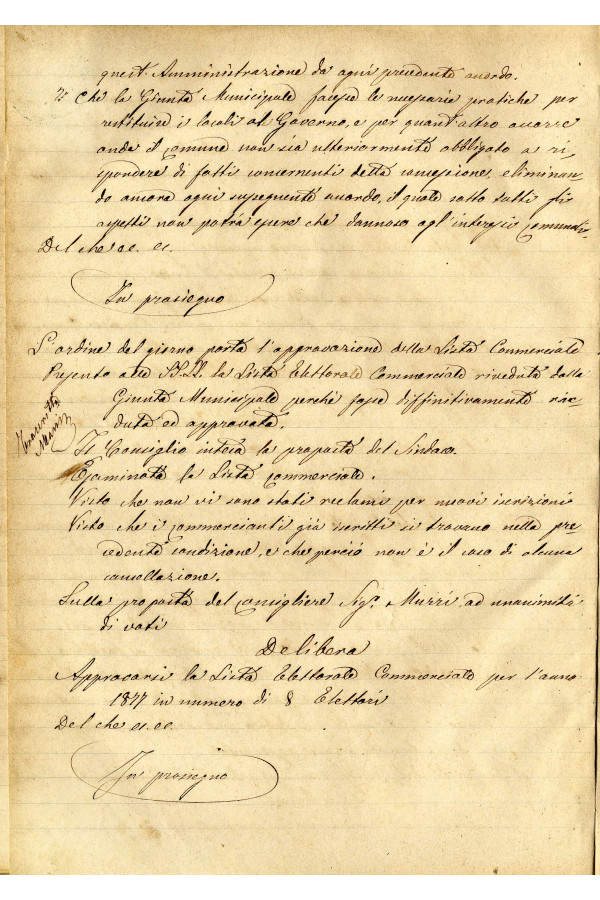 quest. Amministrazione da ogni precedente accordo.
2° Che la Giunta Municipale facesse le necessarie pratiche per
restituire i locali al Governo, e per quant'altro occorre
onde il Comune non sia ulteriormente obbligato a ri-
spondere di fatti concernenti detta concessione, eliminan-
do ancora ogni susseguente accordo, il quale sotto tutti gli
aspetti non potrà essere che dannoso agl'interessi Comunali.
Del che ec. ec.
In prosieguo
L'ordine del giorno porta l'approvazione della Lista Commerciale
Presento alle SS.LL. la Lista Elettorale Commerciale riveduta dalla
Giunta Municipale perchè fosse diffinitivamente rive-
duta ed approvata.
Il Consiglio intesa la proposta del Sindaco.
Esaminata la Lista Commerciale.
Visto che non vi sono stati reclami per nuovi iscrizioni
Visto che i commercianti già iscritti si trovano nelle pre-
cedenti condizione, e che perciò non è il caso di alcuna
cancellazione.
Sulla proposta del consigliere Sig.r Muzzi ad unanimità
di voti
Delibera
Approvarsi la Lista Elettorale Commerciale per l'anno
1877 in numero di 8 Elettori
Del che ec. ec.
In prosieguo